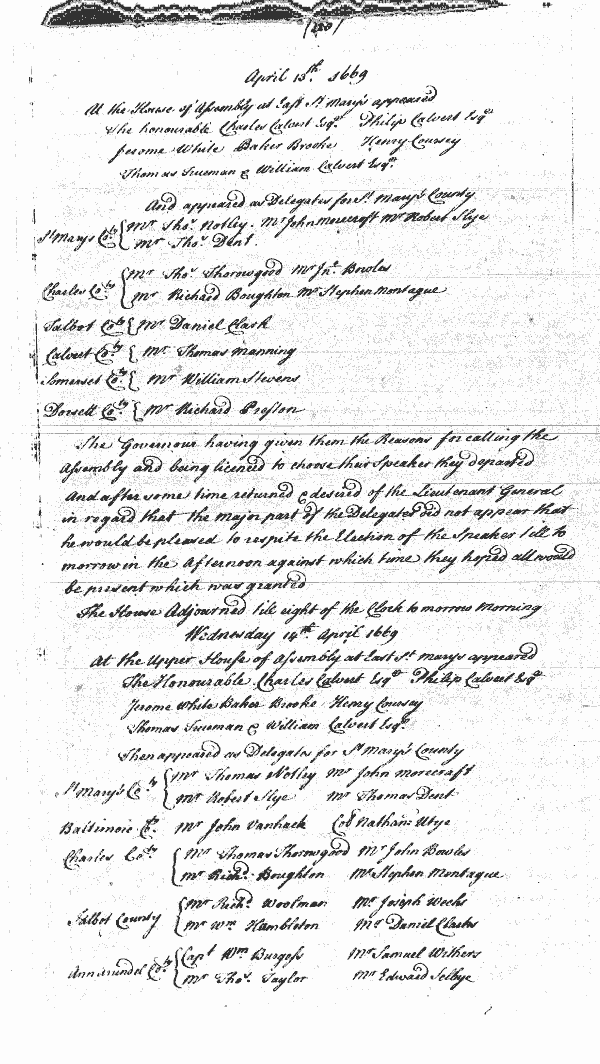 April 13th. 1669
At the House of Assembly at East St Marys appeared
The honourable Charles Calvert Esqr Philip Calvert Esqr
Jerome White Baker Brooke Henry Coursey
Thomas Trueman & William Calvert Esqrs
And appeared as Delegates for St Mary's County
St Marys Coty { Mr Thos. Notley. Mr John Morecroft Mr Robert Slye
Mr Thos. Dent.
Charles Coty { Mr Thos. Thorowgood Mr Jno. Bowles
Mr Richard Boughton Mr Stephen Montague
Talbot Coty { Mr Daniel Clark
Calvert Coty { Mr Thomas Manning
Somerset Coty { Mr William Stevens
Dorsett Coty { Mr Richard Preston
The Governour having given them the Reasons for calling the
Assembly and being licenced to choose their Speaker they departed
And after some time returned & desired of the Lieutenant General
in regard that the major part of the Delegates did not appear that
he would be pleased to respite the Election of the Speaker till to
morrow in the Afternoon against which time they hoped all would
be present which was granted
The House Adjourned till eight of the Clock to morrow Morning
Wednesday 14th. April 1669
At the Upper House of Assembly at East St Marys appeared
The Honourable Charles Calvert Esqr Philip Calvert Esqr
Jerome White Baker Brooke Henry Coursey
Thomas Trueman & William Calvert Esqrs
Then appeared as Delegates for St Mary's County
St Mary's Coty { Mr Thomas Notley Mr John Morecraft
Mr Robert Slye Mr Thomas Dent
Baltimore Coty. Mr John Vanhack Col Nathanl Utye
Charles Coty { Mr Thomas Thorowgood Mr John Bowles
Mr Richd. Boughton Mr Stephen Montague
Talbot County { Mr Richd. Woolman Mr Joseph Weeks
Mr Wm Hambleton Mr Daniel Clarke
Ann arundel Coty { Capt Wm Burgess Mr Samuel Withers
Mr Thos. Taylor Mr Edward Selbye